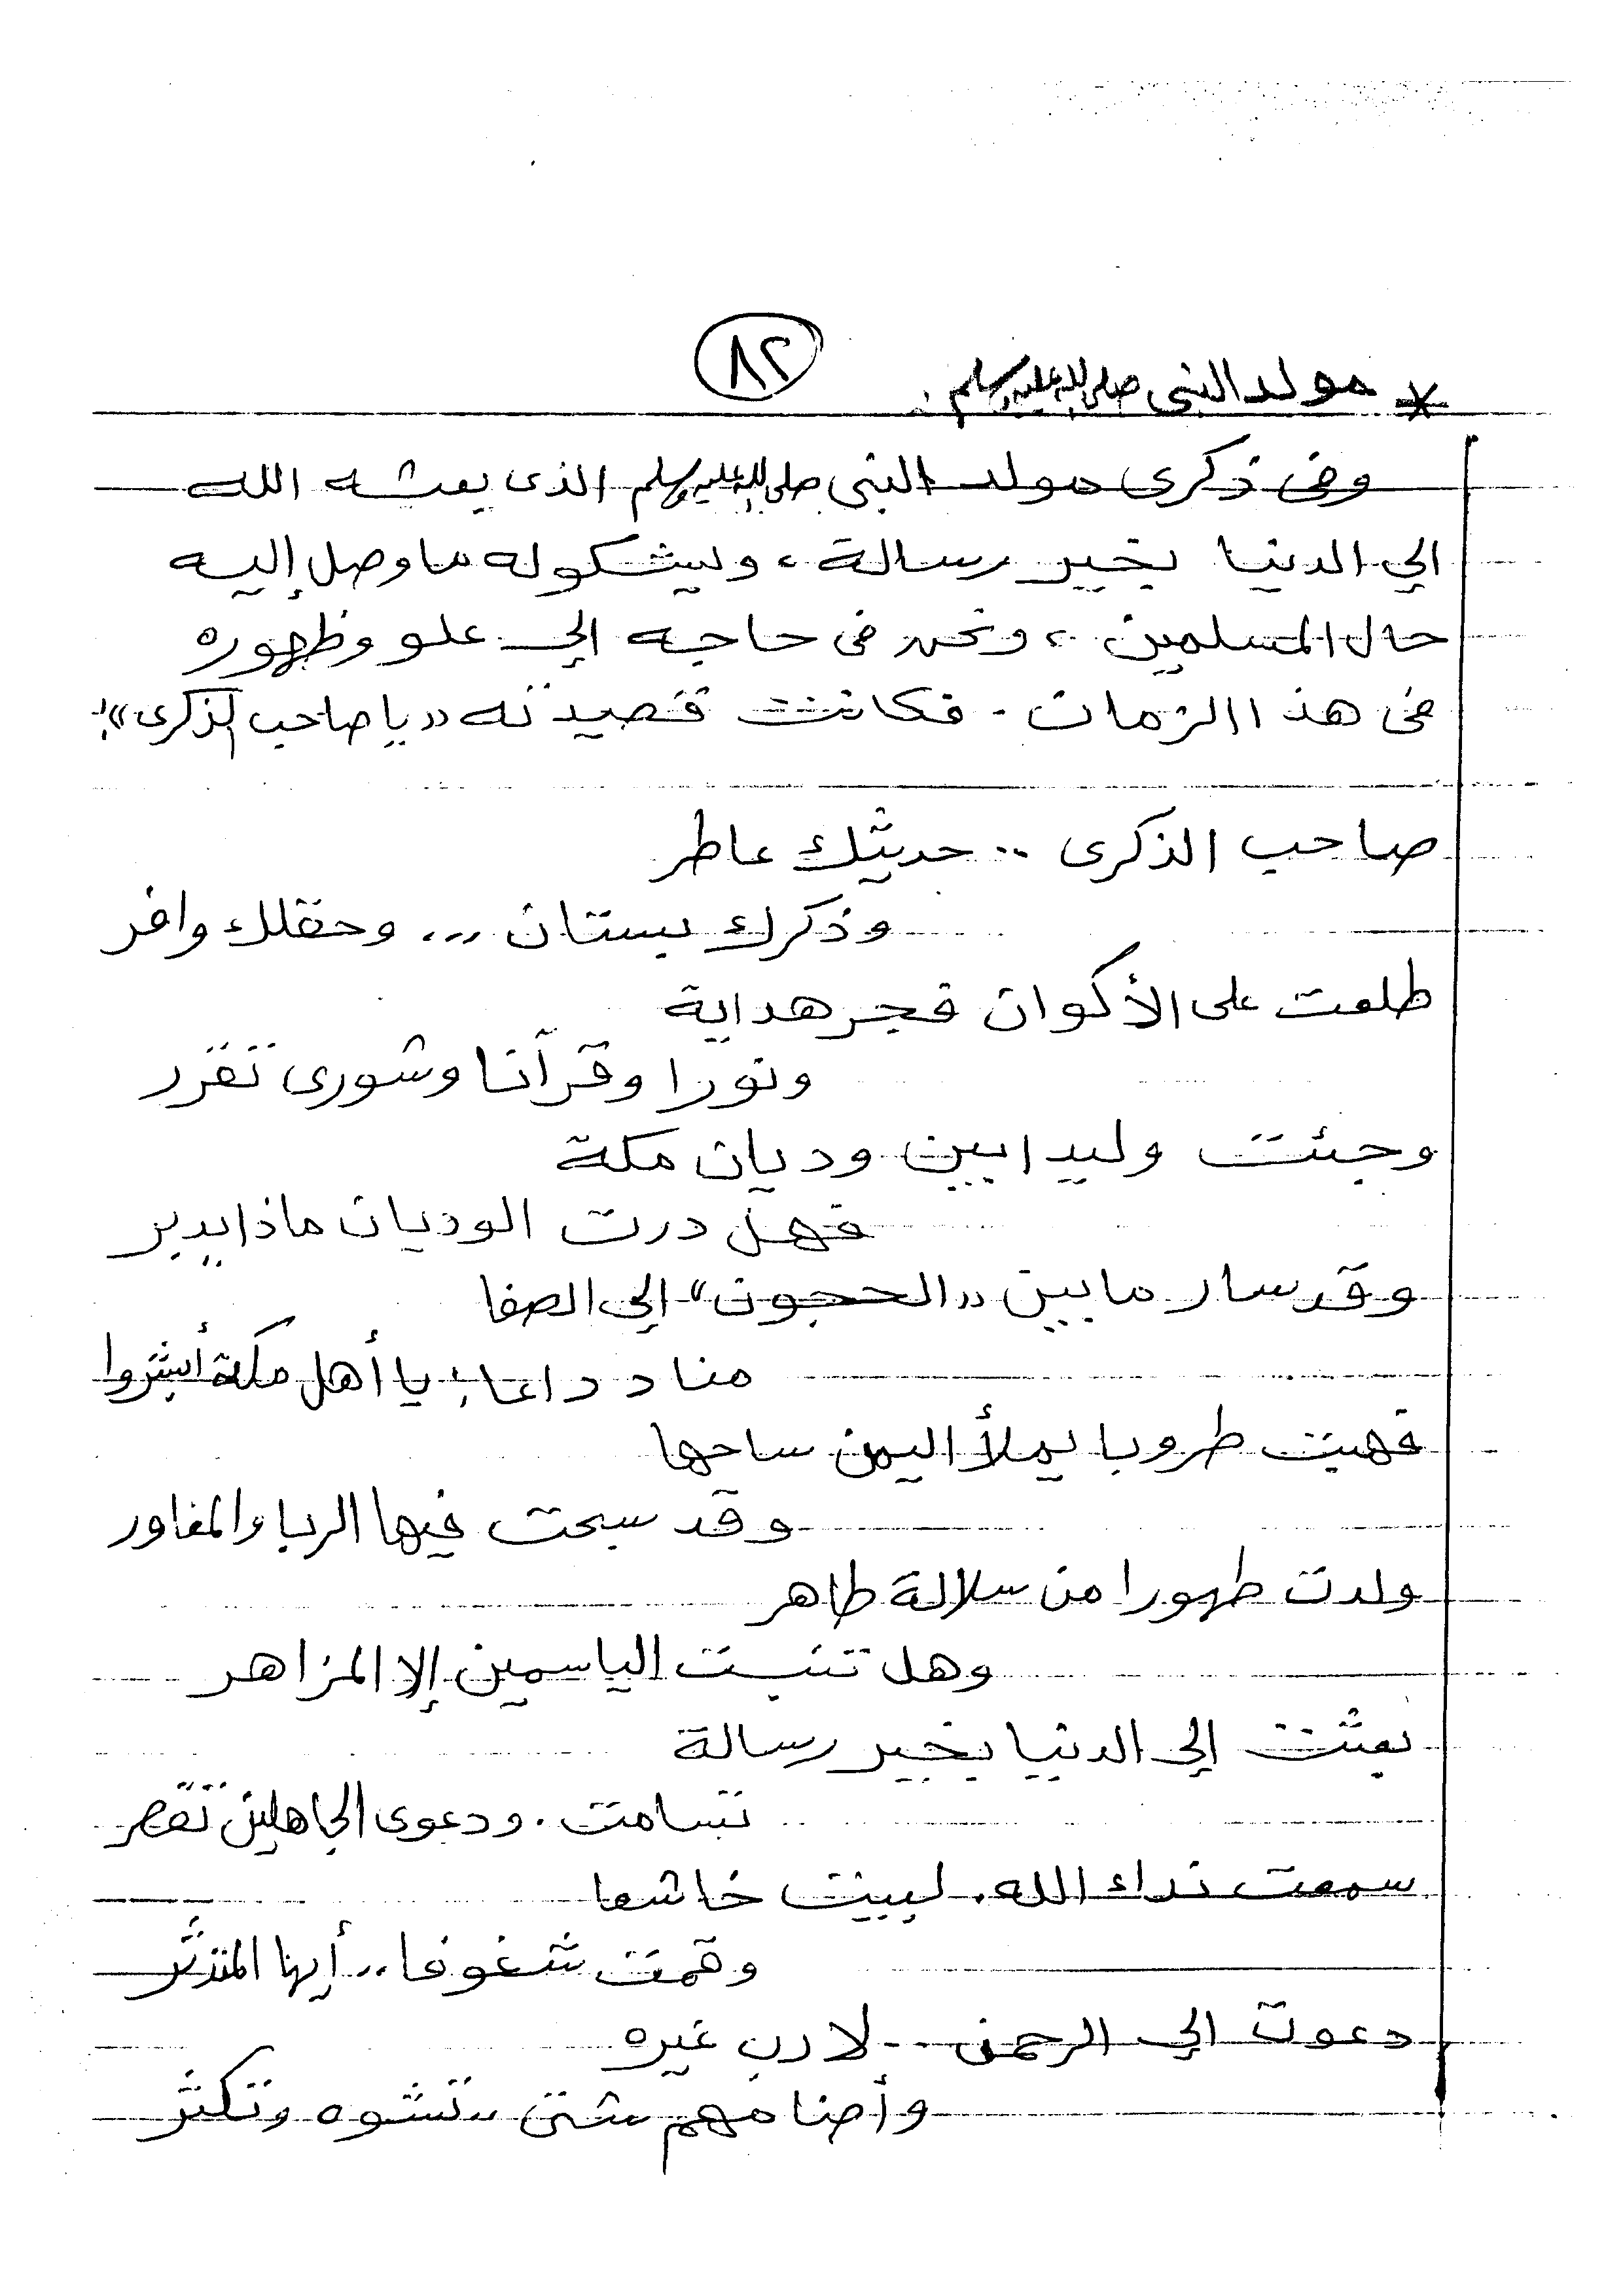 ٨٢
* مولد النبى صلى الله عليه وسلم .
وفى ذكرى مولد النبى صلى الله عليه وسلم الذى بعثه الله
إلي الدنيا بخير رسالة ، ويشكو له ما وصل إليه
حال المسلمين ، ونحن فى حاجه إلي علو وظهوره
فى هذا الزمان . فكانت قصيدته « يا صاحب الذكرى » :
صاحب الذكرى .. حديثك عاطر
وذكرك بستان ... وحقلك وافر
طلعت على الأكوان فجر هداية
ونورا وقرآنا وشورى تقرر
وجئت وليدا بين وديان مكة
فهل درت الوديان ماذا يدبر
وقد سار ما بين « الحجون » إلي الصفا
مناد دعا : يا أهل مكة أبشروا
فهبت طروبا يملأ اليمن ساحها
وقد سبحت فيها الربا والمغاور
ولدت طهورا من سلالة طاهر
وهل تنبت الياسمين إلا المزاهر
بعثت إلي الدنيا بخير رسالة
تسامت . ودعوى الجاهلين تقصر
سمعت نداء الله . لبيت خاشعا
وقمت شغوفا .. أيها المتدثر
دعوت إلي الرحمن .. لا رب غيره
وأصنامهم شتى .. تشوه وتكثر